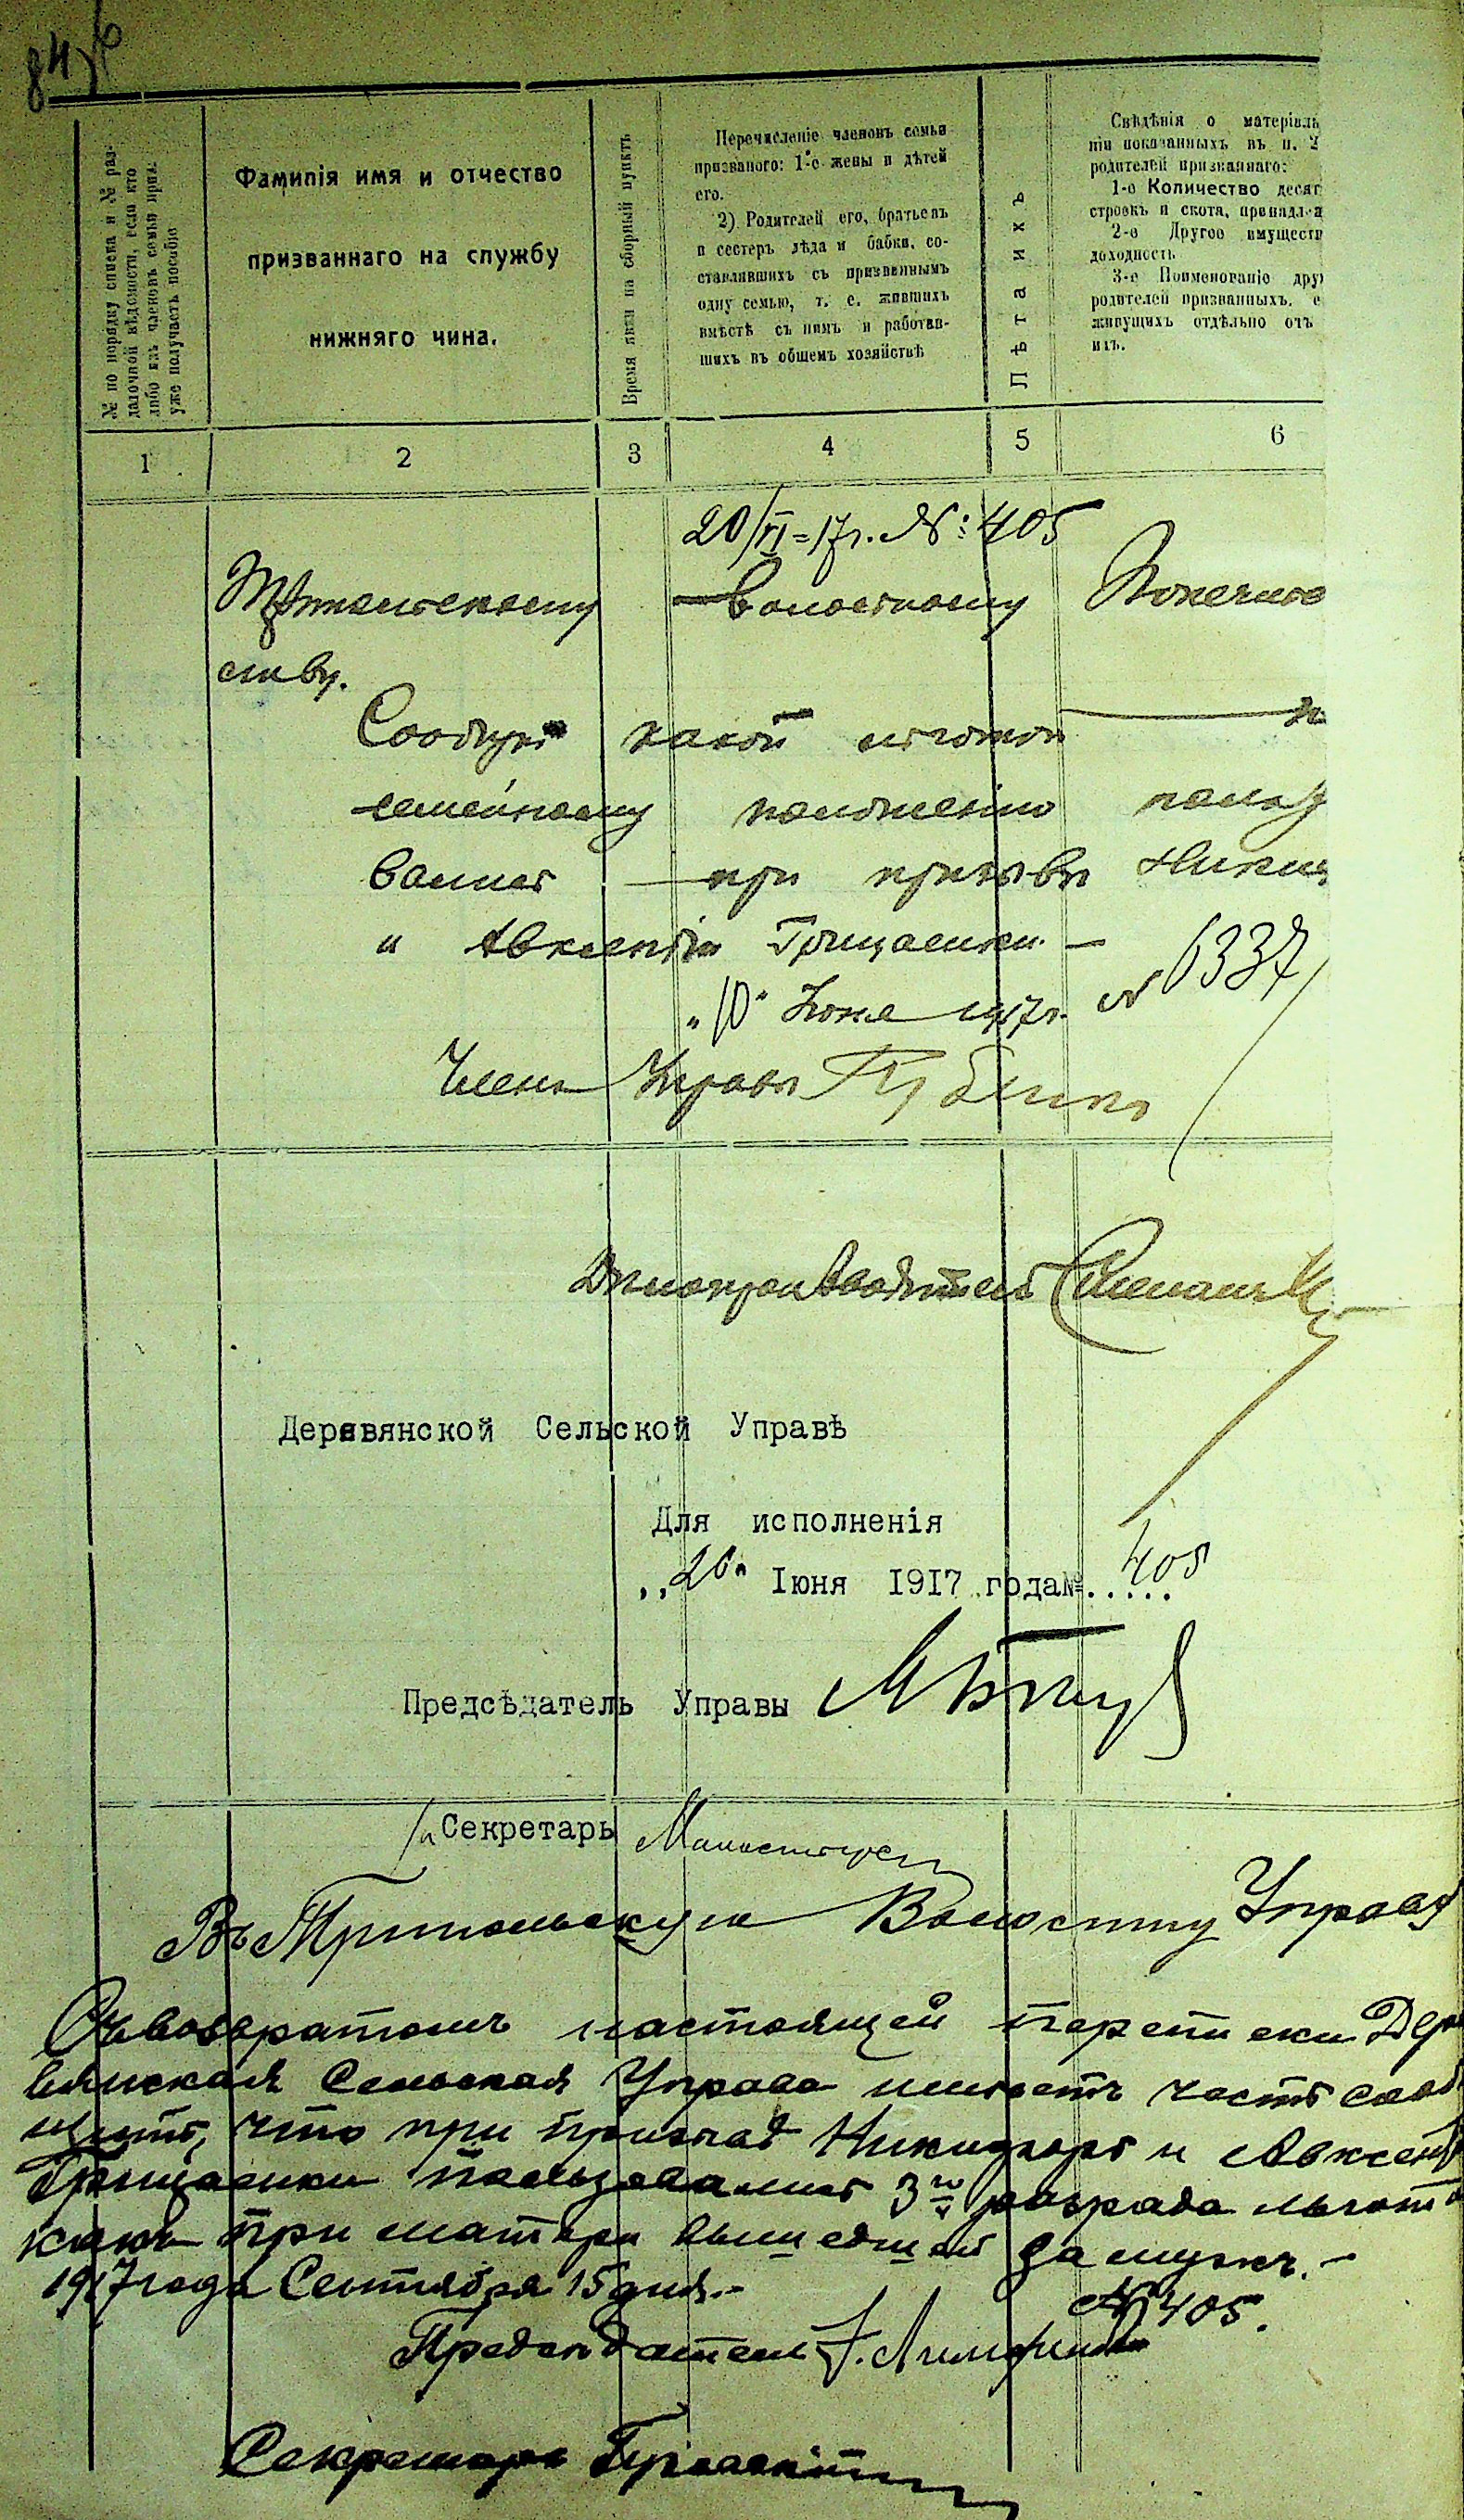 84
№ по порядку списка и № раз-
даточной вѣдомости, если кто
либо изъ членовъ семьи приз.
уже получаетъ пособіе
Фамилія имя и отчество
призваннаго на службу
нижняго чина.
Время явки на сборный пунктъ
Перечисленіе членовъ семьи
призваного: 1-е жены и дѣтей
его.
2) Родителей его, братьевъ
и сестеръ дѣда и бабки, со-
ставлявшихъ съ призваннымъ
одну семью, т. е. жившихъ
вмѣстѣ съ нимъ и работав-
шихъ въ общемъ хозяйствѣ
Лѣта ихъ
Свѣдѣнія о матеріаль
ніи показанныхъ въ п. 2
родителей призваннаго:
1-о Количество десят
строекъ и скота, принадл
2-о Другое имуществ
доходность
3-е Поименованіе друг
родителей призванныхъ,
живущихъ отдѣльно отъ
ихъ.
1 2 3 4 5 6
20/VI-17г. №: 405
Трипольскому Волостному Попечите
ству.
Сообщить какой льготой п
семейному положенію польз
вались при призывѣ Ники
и Авксентій Грищенки. —
„10" Іюня 1917г. № 6337
Членъ Управы
Дѣлопроизводитель
Деревянской Сельской Управѣ
Для исполненія
„20" Іюня 1917 года№ 405
Предсѣдатель Управы
Секретарь
Въ Трипольскую Волостну Управу
Съ возвратомъ настоящей переписки Дере
вянская Сельская Управа имѣетъ честь сооб
щить, что при призывѣ Никифоръ и Авксент
Грищенки пользовались 3го разряда льгот
какъ при матери вышедшей замужъ. —
1917 года Сентября 15 дня. -
№ 405.
Предсѣдатель
Секретарь